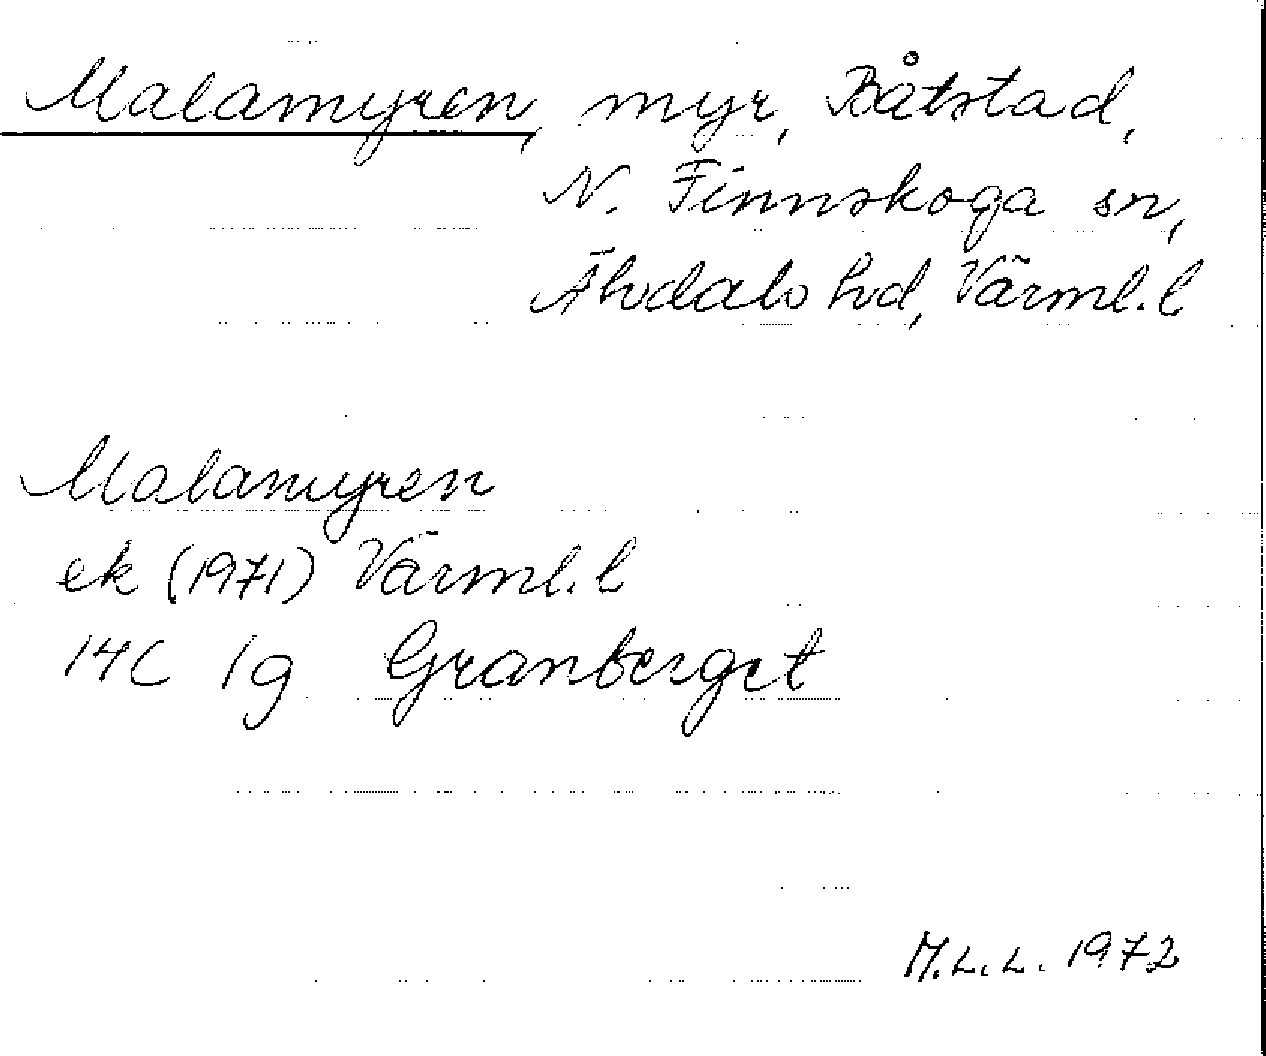 Malamyren, myr, Båtstad,
N. Finnskoga sn,
Älvdals hd, Värml. l
Malamyren
ek (1971) Värml. l
14C 1g Granberget
M.L.L. 1972